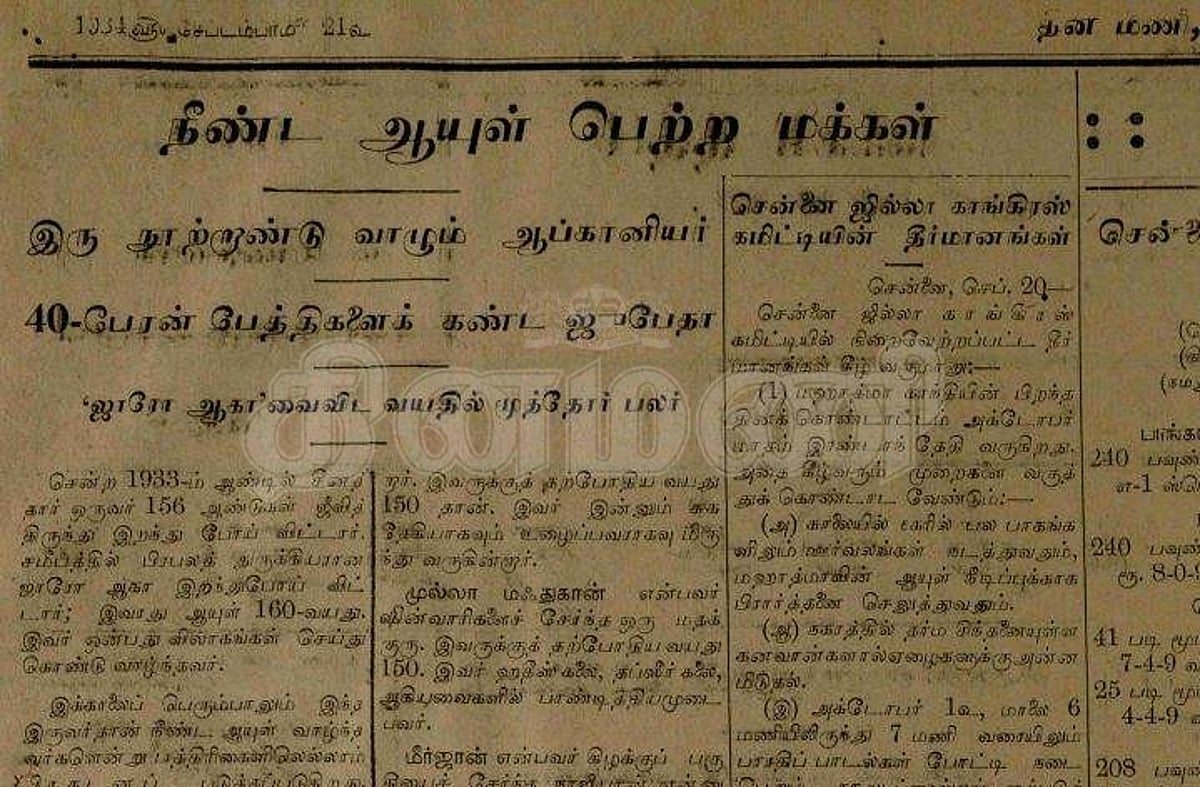 1934ஹு செப்டம்பர்மீ 21உ
தின மணி,
நீண்ட ஆயுள் பெற்ற மக்கள்
இரு நூற்றாண்டு வாழும் ஆப்கானியர்
40-பேரன் பேத்திகளைக் கண்ட ஜுபேதா
‘ஜாரோ ஆகா’வைவிட வயதில் மூத்தோர் பலர்
சென்ற 1933-ம் ஆண்டில் சீனத்
தார் ஒருவர் 156 ஆண்டுகள் ஜீவித்
திருந்து இறந்து போய் விட்டார்.
சமீபத்தில் பிரபலத் துருக்கியரான
ஜாரோ ஆகா இறந்துபோய் விட்
டார்; இவரது ஆயுள் 160-வயது.
இவர் ஒன்பது விவாகங்கள் செய்து
கொண்டு வாழ்ந்தவர்.
இக்காலைப் பெரும்பாலும் இந்த
இருவர்தான் நீண்ட ஆயுள் வாழ்ந்த
வர்களென்று பத்திரிகைகளிலெல்லாம்
றார். இவருக்குத் தற்போதிய வயது
150 தான். இவர் இன்னும் சுக
தேகியாகவும் உழைப்பவராகவு மிரு
ந்து வருகின்றார்.
முல்லா மஃதுகான் என்பவர்
ஷின்வாரிகளைச் சேர்ந்த ஒரு மதக்
குரு. இவருக்குத் தற்போதிய வயது
150. இவர் ஹதீஸ் கலை, தப்ஸீர் கலை,
ஆகியவைகளில் பாண்டித்தியமுடை
யவர்.
மீர்ஜான் என்பவர் கிழக்குப் பகு
தியைச் சேர்ந்த
சென்னை ஜில்லா காங்கிரஸ்
கமிட்டியின் தீர்மானங்கள்
சென்னை, செப். 20—
சென்னை ஜில்லா காங்கிரஸ்
கமிட்டியில் நிறைவேற்றப்பட்ட தீர்
மானங்கள் கீழ் வருமாறு:—
(1) மஹாத்மா காந்தியின் பிறந்த
தினக் கொண்டாட்டம் அக்டோபர்
மாதம் இரண்டாந் தேதி வருகிறது.
அதை கீழ்வரும் முறைகளை வகுத்
துக் கொண்டாட வேண்டும்:—
(அ) காலையில் நகரில் பல பாகங்க
ளிலும் ஊர்வலங்கள் நடத்துவதும்,
மஹாத்மாவின் ஆயுள் நீடிப்புக்காக
பிரார்த்தனை செலுத்துவதும்.
(ஆ) நகரத்தில் தர்ம சிந்தனையுள்ள
கனவான்களால் ஏழைகளுக்கு அன்ன
மிடுதல்.
(இ) அக்டோபர் 1உ, மாலை 6
மணியிலிருந்து 7 மணி வரையிலும்
பாரதிப் பாடல்கள் போட்டி நடை
சென்னை
240 பவுண்
ள-1 ஸ்பெ
240 பவுண்
ரூ. 8-0-9
41 படி மூ
7-4-9 வ
25 படி மூ
4-4-9 வ
208 பவுண்
தினமணி